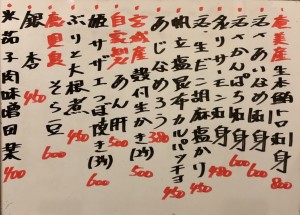 奄美産生本鮪トロ刺身 800
あいなめ刺身 600
かんぱち刺身 600
炙りサーモン刺身 480
生だこ胡麻塩 450
帆立塩昆布カルパッチョ 450
あじなめろう 380
宮城産殻付生かき(2ケ) 500
自家製あん肝 500
姫サザエつぼ焼き(3ケ) 600
ぶりと大根煮 450
鹿児島そら豆 600
銀杏 450
米茄子肉味噌田楽 400